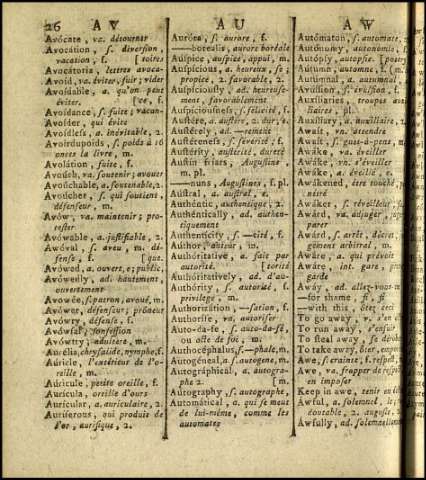 26 AV AU AW
Avócate, va. détourner
Avocátion, s. diversion,
vacation, f. [toires
Avócatória, lettres avoca-
Avoíd, va. éviter, fuir; vider
Avoídable, a. qu'on peut
éviter. [ce, f.
Avoídance, s. fuite; vacan-
Avoíder, qui évite
Avoídless, a. inévitable, 2.
Avoirdupoíds, s. poids à 16
onces la livre, m.
Avolátion, fuite, f.
Avoúch, va. soutenir; avouer
Avoúchable, a. soutenable, 2.
Avoúcher, s. qui soutient
défenseur, m.
Avów, va. maintenir; pro-
tester
Avówable, a. justifiable, 2.
Avówal, s. aveu, m. dé-
fense, f. [que.
Avówed, a. ouvert, e; public,
Avówedly, ad. hautement,
ouvertement
Avowée, s. patron, avoué, m.
Avówer, défenseur; prôneur
Avówry, défense, f.
Avówsal, confession
Avówtry, adultere, m.
Aurélia, chrysalide, nymphe, f.
Auricle, l'extérieur de l'o-
reille, m.
Aúricule, petite oreille, f.
Auricula, oreille d'ours
Aurícular, a. auriculaire, 2.
Auríferous, qui produit de
l'or, aurifique, 2.
Auróra, s. aurore, f.
—borealis, aurore boréale
Aúspice, auspice, appui, m.
Auspícious, a. heureux, se;
propice, 2. favorable, 2.
Auspíciously, ad. heureuse-
ment, favorablement
Auspíciousness, s. félicité, f.
Austére, a. austere, 2. dur; e.
Austérely, ad. —rement
Austéreness, s. séverité, f.
Austérity, austérité, dureté
Austin friars, Augustins,
m. pl.
—nuns, Augustines, f. pl.
Aústral, a. austral, e.
Authéntic, authentique, 2.
Authéntically, ad. authen-
tiquement
Authentícity, s. —cité, f.
Aúthor, auteur, m.
Authóritative, a. fait par
autorité. [torité
Authóritatively, ad. d'au-
Authórity, s. autorité, f.
privilege, m.
Authorizátion, —sation, f.
Aúthorise, va. autoriser
Auto-da-fe, s. auto-da-fé,
ou acte de foi, m.
Authocéphalus, s. —phale, m.
Autógeneal, s. autogene, m.
Autográphical, a. autogra-
phe 2. [m.
Autógraphy, s. autographe,
Automátical, a. qui se meut
de lui-même, comme les
automates
Autómaton, s. automate,
Autónomy, autonomie, f.
Autópsy, autopsie. [poetry
Aútumn, automne, f. (m.
Autúmnal, a. automnal,
Avúlsion, s. évulsion, f.
Auxíliaries, troupes auxi-
liaires, pl.
Auxíliary, a. auxiliaire, 2.
Awaít, vn. attendre
Awaít, s. guet-à-pens, m.
Awáke, va. éveiller
Awáke, vn. s'éveiller
Awáke, a. éveillé, e.
Awákened, être touché,
nitré
Awáker, s. réveilleur,
Awárd, va. adjuger,
parer
Awárd, s. arrêt, décision,
gement arbitral, m.
Awáre, a. qui prévoit
Awáre, int. gare, prenez
garde
Awáy, ad. allez-vous-
—for shame, fi, fi
—with this, ôtez ceci
To go away, v. s'en
To run away, s'enfuir
To steal away, se dérober
To take away, ôter, emporter
Awe, s. crainte, f. respect,
Awe, va. frapper de respect
en imposer
Keep in awe, tenir en
Awful, a. solemnel, le;
doutable, 2. auguste, 2.
Awfully, ad. solemnellement